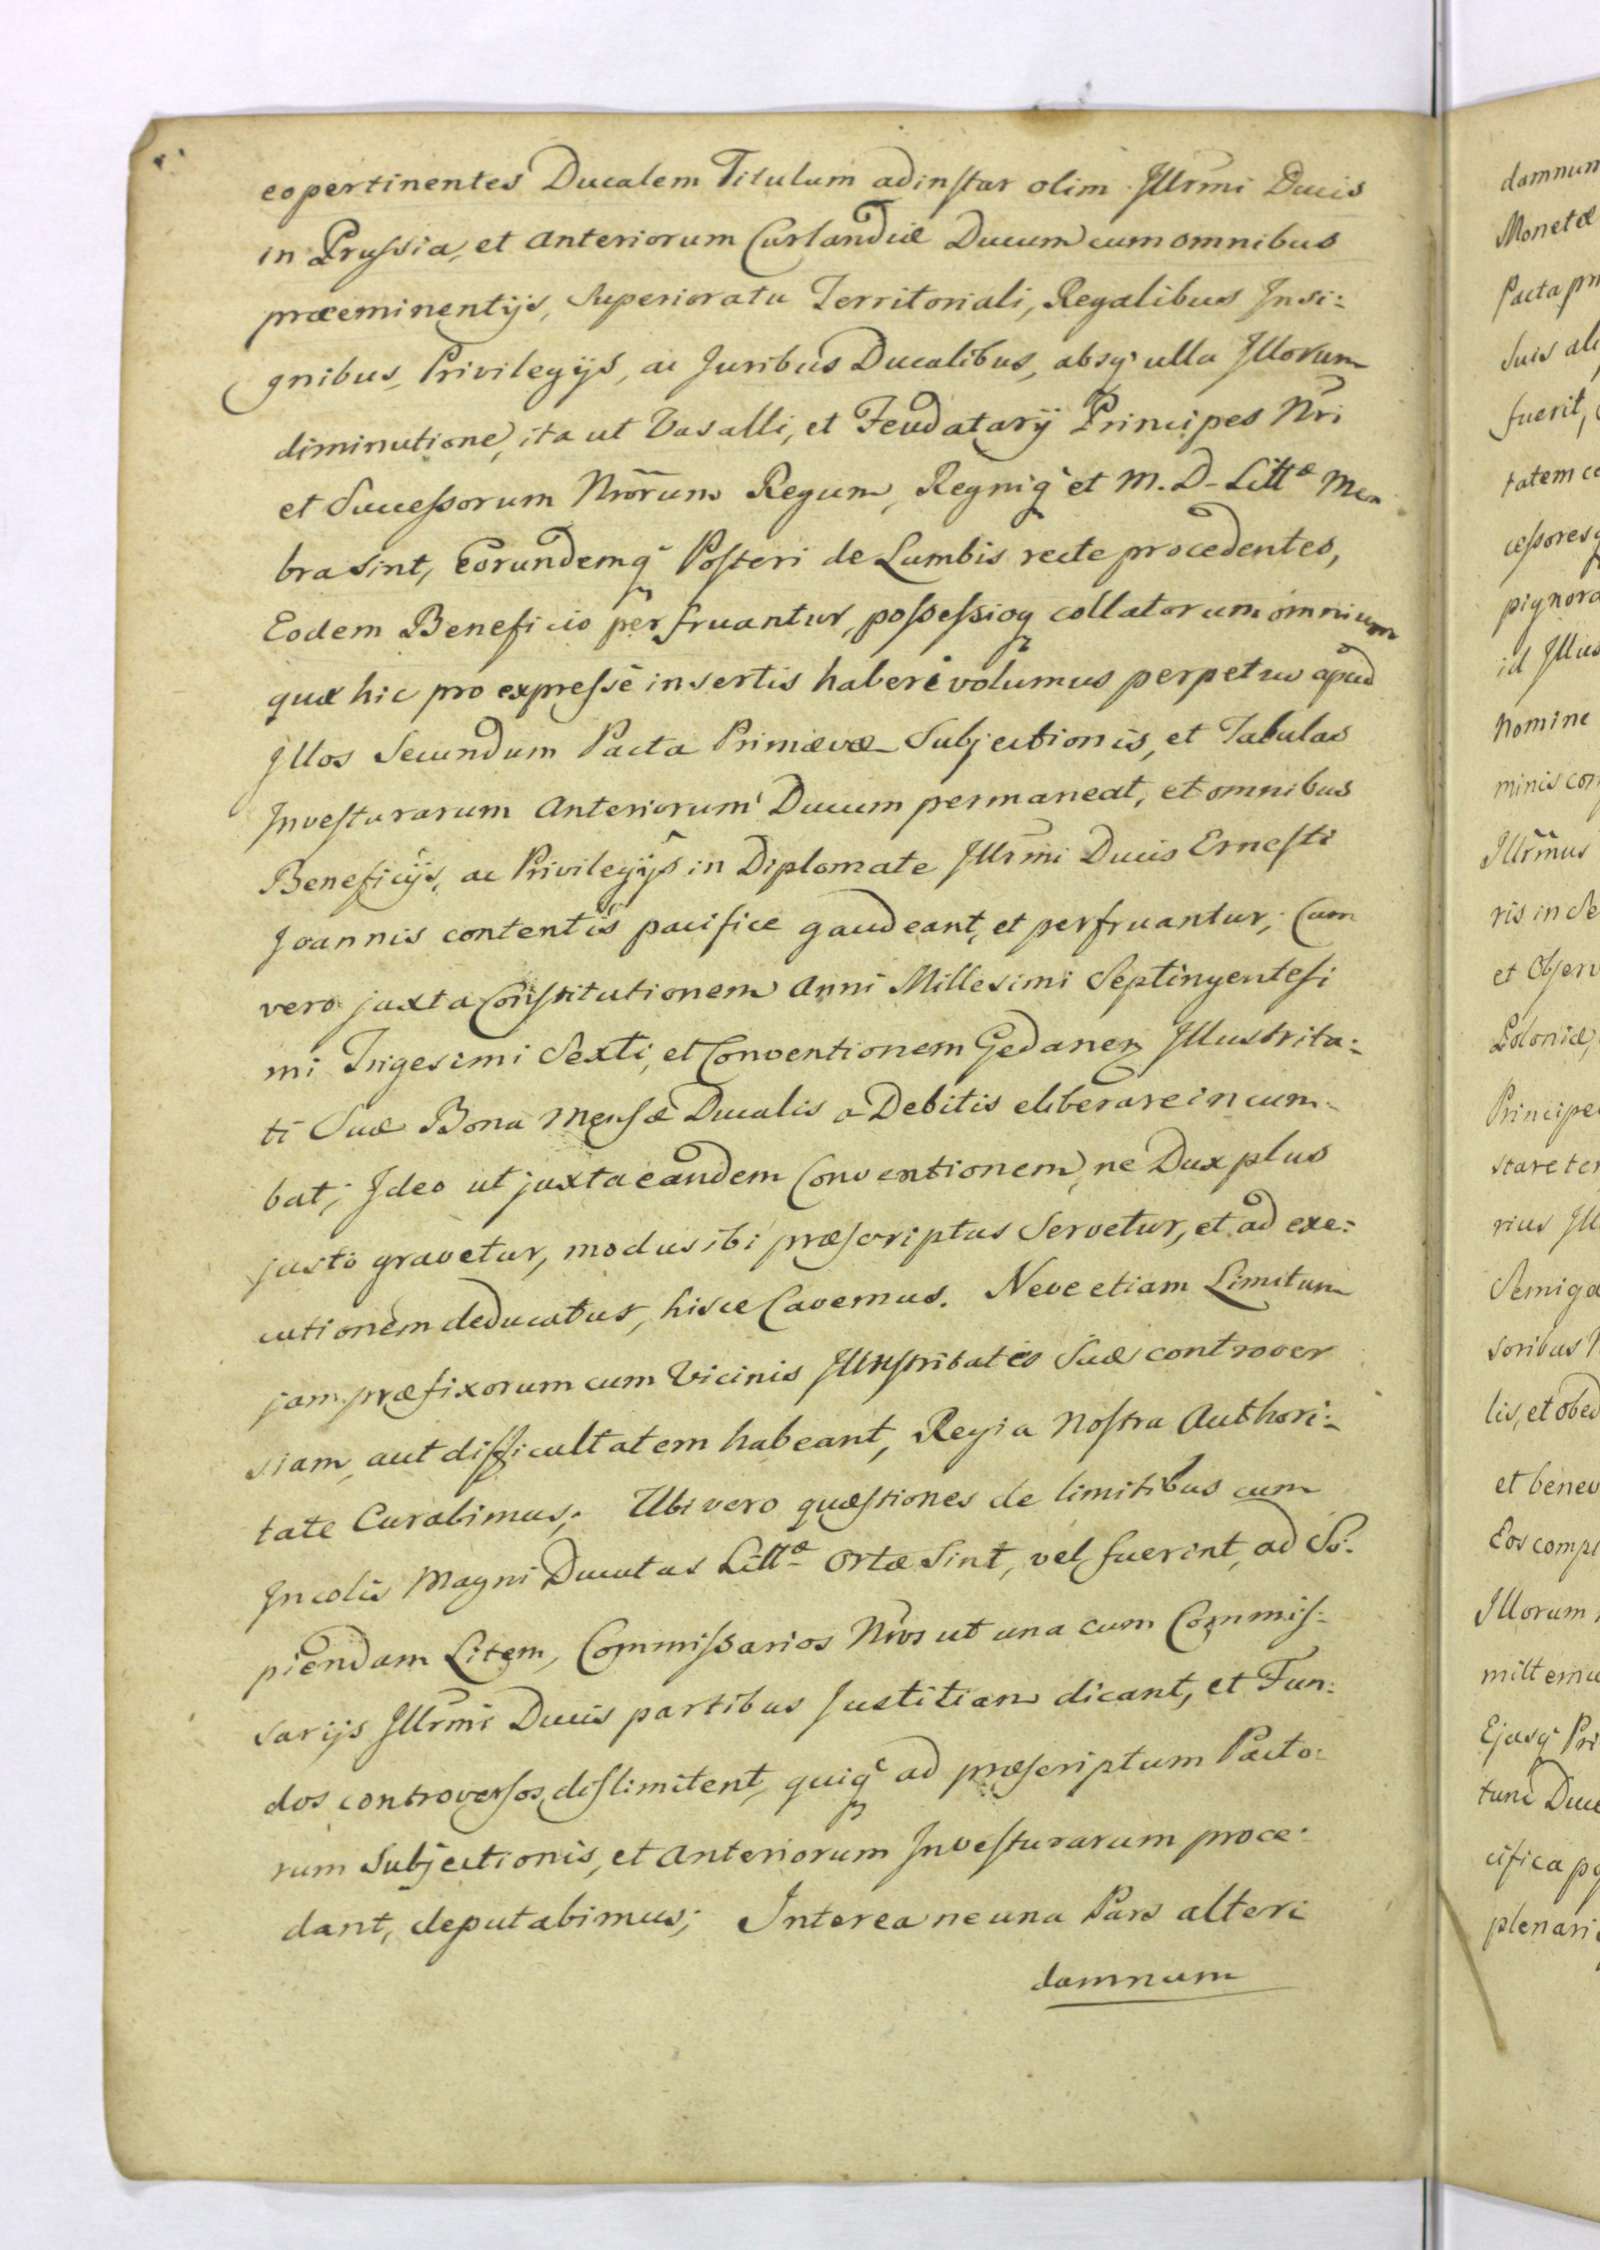 eo pertinentes Ducalem Titulum ad instar olim Illr̃mi Ducis
in Prussia, et Anteriorum Curlandiæ Ducum cum omnibus
præeminentijs, Superioratu Territoriali, Regalibus Insi:
gnibus, Privilegijs, ac Juribus Ducalibus, absq́ ulla Illorum
diminutione, ita ut Vasalli, et Feudatarij Principes Nr̃i
et Successorum Nr̃orum Regum, Regniq́ et M. D. Littæ Mem
bra sint, Eorundemq́ Posteri de Lumbis recte procedentes,
Eodem Beneficio perfruantur, possessioq́ collatorum omnium
quæ hic pro expresse insertis haberi volumus perpetuo apud
Illos Secundum Pacta Primævæ Subjectionis, et Tabulas
Investurarum Anteriorum Ducum permaneat, et omnibus
Beneficijs, ac Privilegijs in Diplomate Illr̃mi Ducis Ernesti
Joannis contentis pacifice gaudeant, et perfruantur; Cum
vero juxta Constitutionem Anni Millesimi Septingentesi
mi Trigesimi Sexti, et Conventionem Gedanen Illustrita:
ti Suæ Bona Mensæ Ducalis a Debitis eliberare incum-
bat; Ideo ut juxta eandem Conventionem, ne Dux plus
justo gravetur, modus ibi præscriptus Servetur, et ad exe:
cutionem deducatur, hisce Cavemus. Neve etiam Limitum
jam præfixorum cum Vicinis Illustritatis Suæ controver
siam, aut difficultatem habeant, Regia Nostra Authori:
tate Curabimus; Ubi vero quæstiones de limitibus cum
Incolis Magni Ducatus Littæ Ortæ Sint, vel fuerint, ad So-
piendam Litem, Commissarios Nr̃os ut una cum Commis:
sarijs Illr̃mi Ducis partibus Justitiam dicant, et Fun:
dos controversos dislimitent, quiq́ ad præscriptum Pacto:
rum Subjectionis, et Anteriorum Investurarum proce:
dant, deputabimus; Interea ne una Pars alteri
damnum
damnum
Monetæ
Pacta
Suis
fuerit,
tatem
id
Nomine
Illr̃mus
ris in
et
Poloniæ,
stare
rius
lis, et
Eos
Illorum
plenari